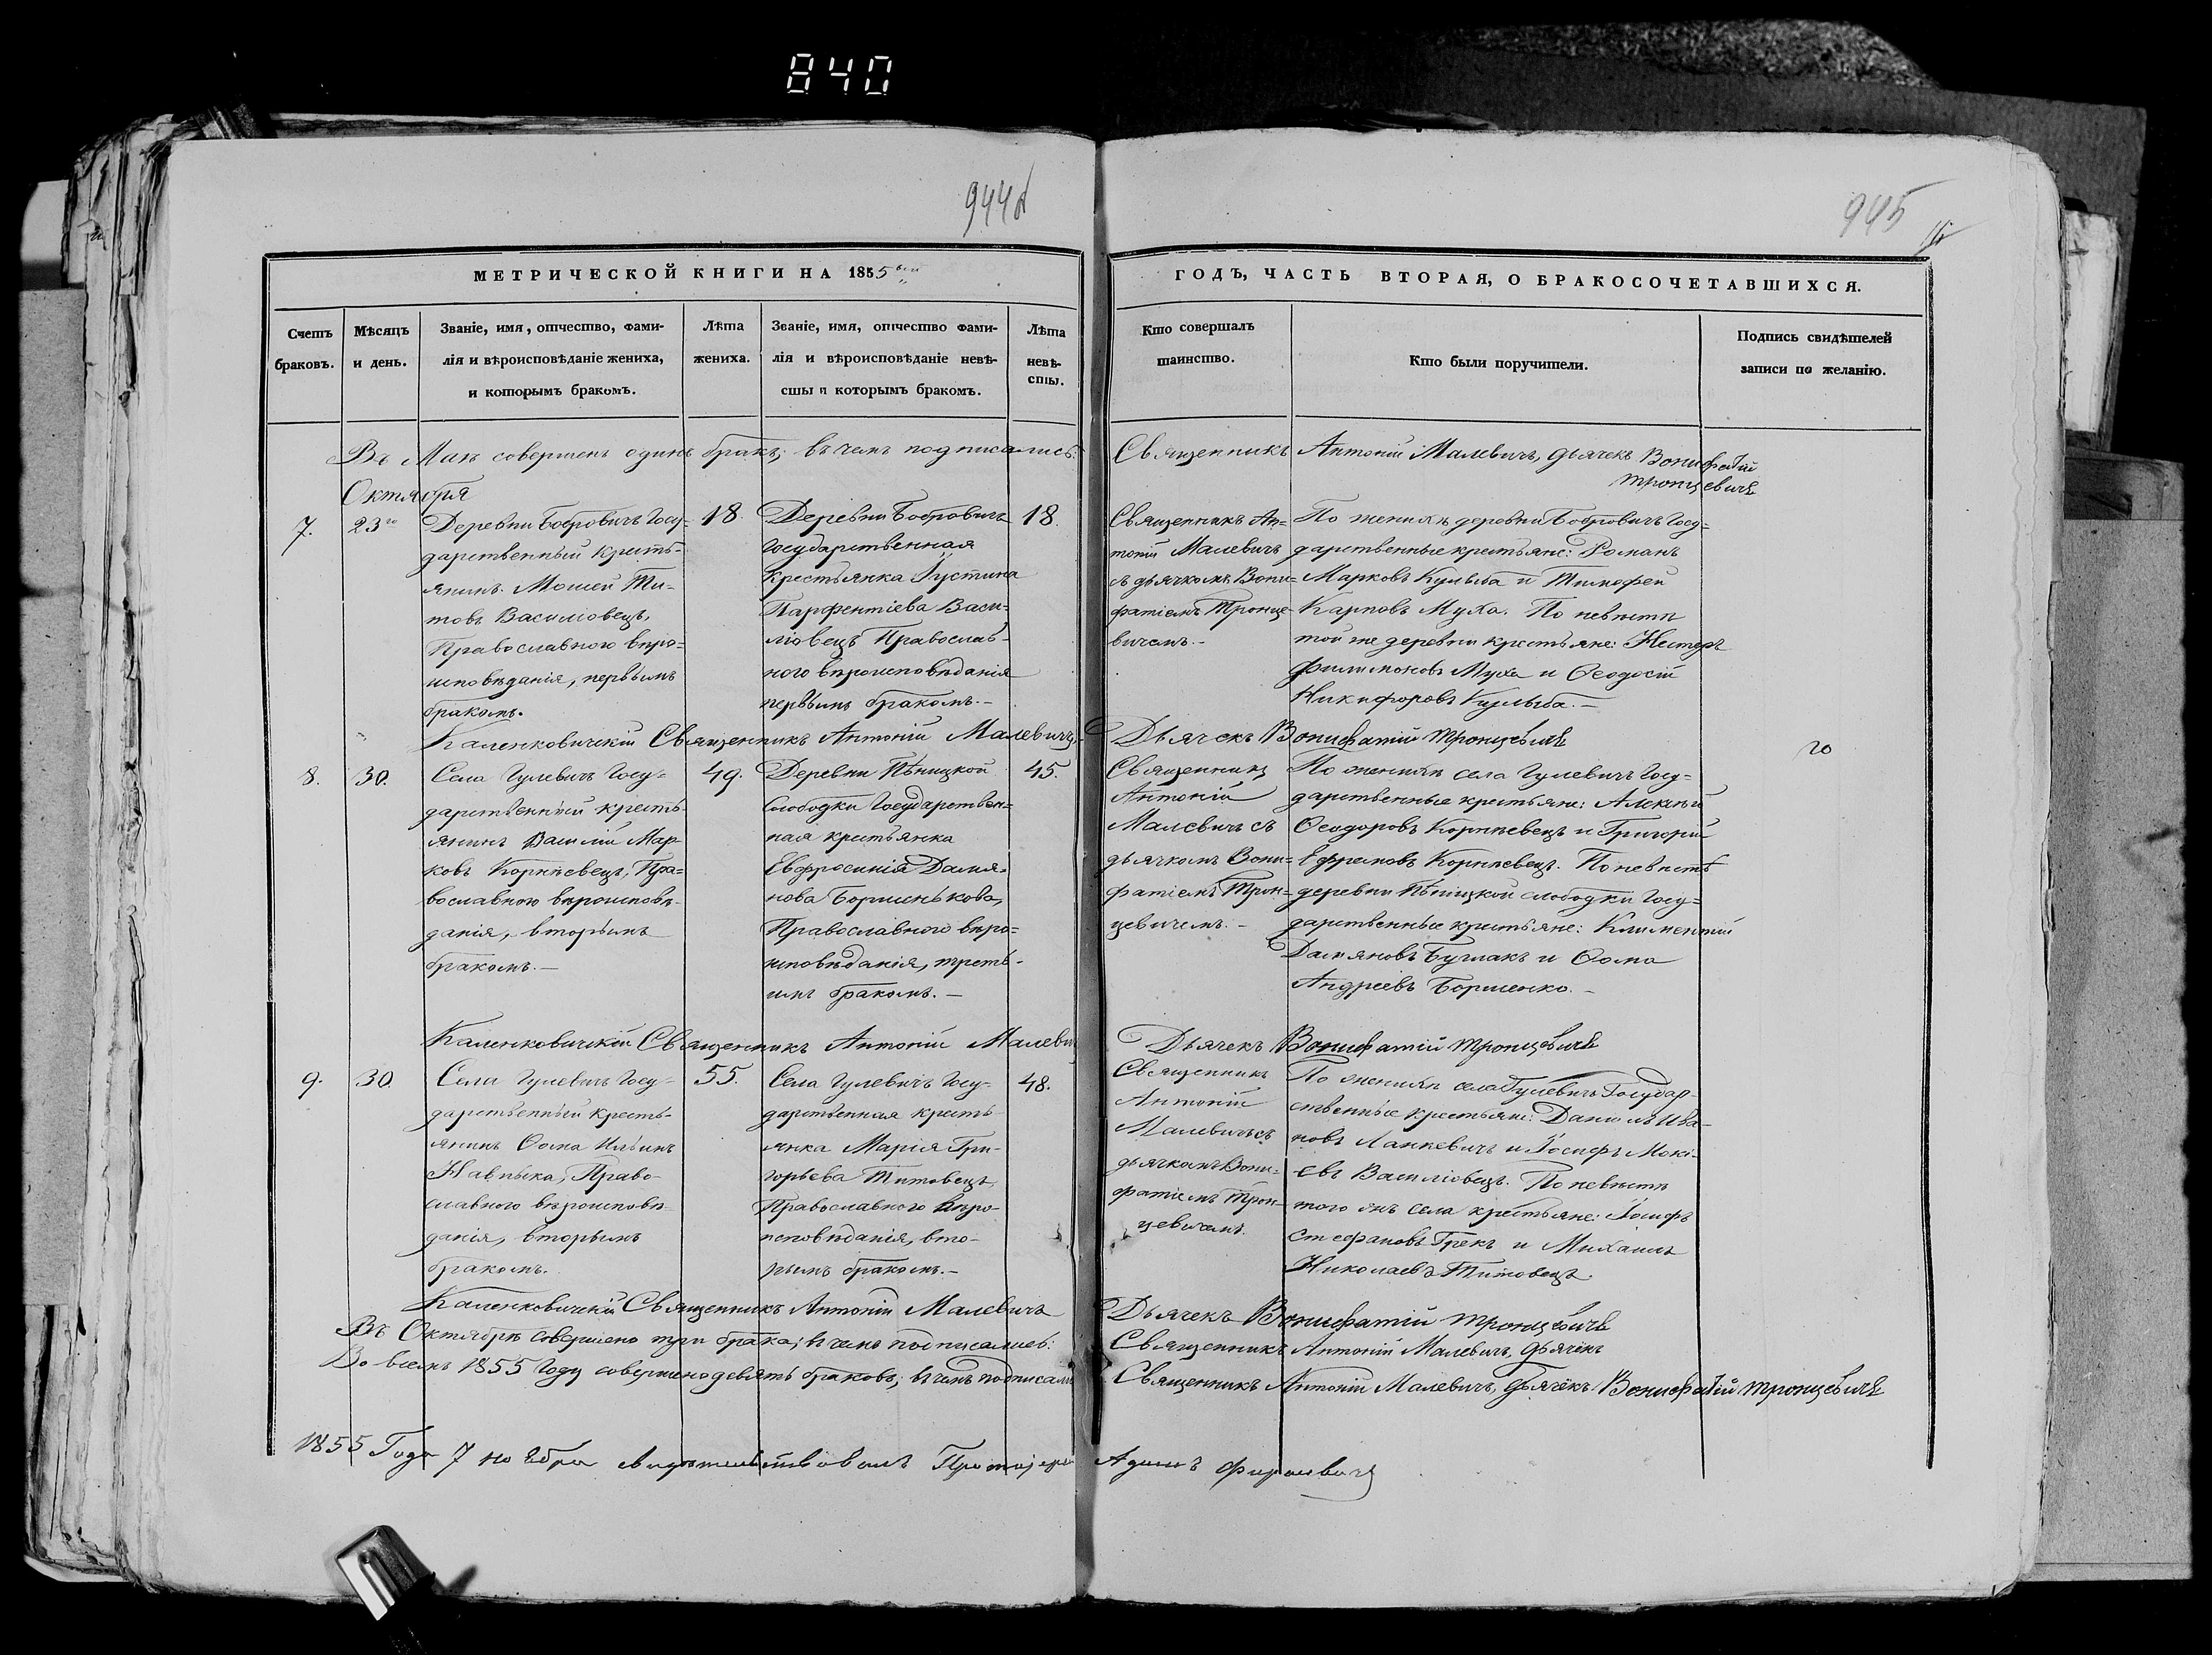 840
944
945
МЕТРИЧЕСКОЙ КНИГИ НА 1855
Счетъ браковъ.
Мѣсяцъ и день.
Званіе, имя, отчество, фами-
лія и вѣроисповѣданіе жениха,
и которымъ бракомъ.
Лѣта жениха.
Званіе, имя, отчество фами-
лія и вѣроисповѣданіе невѣ-
сты и которымъ бракомъ.
Лѣта
невѣ-
сты.
ГОДЪ, ЧАСТЬ ВТОРАЯ, О БРАКОСОЧЕТАВШИХСЯ.
Кто совершалъ
таинство.
Кто были поручители.
Подпись свидѣтелей
записи по желанію.
Въ Маѣ совершенъ одинъ бракъ; въ чемъ подписались:
Священникъ Антоній Малевичъ, дьячекъ Вонифатій
Тронцевичъ
Октября
7.
23го
Деревни Бобровичъ Госу=
дарственный кресть-
янинъ Моисей Ти-
товъ Василіовецъ,
Православного вѣро=
исповѣданія, первымъ
бракомъ.
18.
Деревни Бобровичъ
Государственная
Крестьянка Іустина
Парфентіева Васи-
ліовецъ Православ-
ного вѣроисповѣданія
первымъ бракомъ.-
18.
Священникъ Ан=
тоній Малевичъ
съ дьячкомъ Вони=
фатіемъ Тронце
вичемъ.-
По женихѣ деревни Бобровичъ Госу=
дарственные крестьяне: Романъ
Марковъ Кулыба и Тимофей
Карповъ Муха. По невѣстѣ
той же деревни крестьяне: Несторъ
Филимоновъ Муха и Ѳеодосій
Никифоровъ Кулыба.-
Каленковичскій Священникъ Антоній Малевичъ,
Дьячекъ Вонифатій Тронцевичъ
8.
30.
Села Гулевичъ Госу=
дарственный кресть
янинъ Василій Мар
ковъ Корнѣевецъ, Пра=
вославного вѣроисповѣ-
данія, вторымъ
бракомъ.-
49.
Деревни
Слободки Государствен=
ная крестьянка
Евфросинія Дамья-
нова Борисенькова,
Православного вѣро=
исповѣданія, треть-
имъ бракомъ.-
45.
Священникъ
Антоній
Малевичъ съ
дьячкомъ Вони=
фатіемъ Трон=
цевичемъ.-
По женихѣ села Гулевичъ Госу=
дарственные крестьяне: Алексѣй
Ѳеодоровъ Корнѣевецъ и Григорій
Ефремовъ Корнѣевецъ. По невѣстѣ
деревни слободки Госу=
дарственные крестьяне: Климентій
Дамьяновъ и Ѳома
Андреевъ Борисенко.-
Каленковичскій Священникъ Антоній Малевич
Дьячекъ Вонифатій Тронцевичъ
9.
30.
Села Гулевичъ Госу=
дарственный кресть-
янинъ Ѳома Ильинъ
Право-
славного вѣроисповѣ
данія, вторымъ
бракомъ.
55.
Села Гулевичъ Госу=
дарственная кресть
янка Марія Гри-
горьева Титовецъ,
Православного вѣро-
исповѣданія, вто-
рымъ бракомъ.-
48.
Священникъ
Антоній
Малевичъ съ
дьячкомъ Вони=
фатіемъ Трон=
цевичемъ.
По женихѣ села Гулевичъ Государ-
ственные крестьяне: Даніилъ Ива-
новъ Ланкевичъ и Іосифъ Мокі-
евъ Василіовецъ. По невѣстѣ
того жъ села крестьяне: Іосифъ
Стефановъ Грекъ и Михаилъ
Николаевъ Титовецъ.
Каленковичскій Священникъ Антоній Малевичъ
Дьячекъ Вонифатій Тронцевичъ
Въ Октябрѣ совершено три брака; въ чемъ подписались:
Священникъ Антоній Малевичъ, Дьячекъ
Во всемъ 1855 Году совершено девять браковъ; въ чемъ подписали
Священникъ Антоній Малевичъ, Дьячекъ Вонифатій Тронцевичъ
1855 Года 7 ноября свидѣтельствовалъ Протоіерей Адамъ